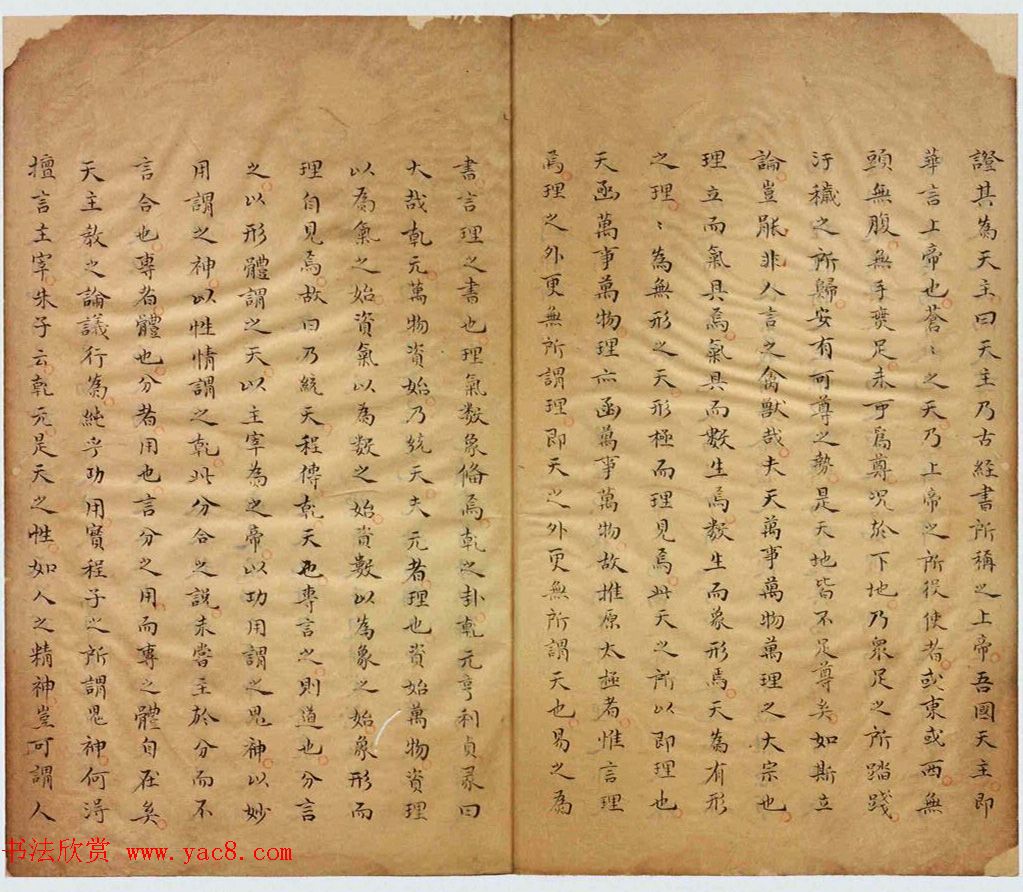 證其為天主曰天主乃古経書所稱之上帝吾國天主即
華言上帝也蒼〻之天乃上帝之所役使者或東或西無
頭無腹無手無足未可爲尊况於下地乃衆足之所踏踐
汙穢之所歸安有可尊之勢是天地皆不足尊矣如斯立
論豈能非人言之禽獸哉夫天萬事萬物萬理之大宗也
理立而氣具焉氣具而數生焉數生而象形焉天為有形
之理〻為無形之天形極而理見焉此天之所以即理也
天函萬事萬物理亦函萬事萬物故推原太極者惟言理
焉理之外更無所謂理即天之外更無所謂天也易之為
書言理之書也理氣数象俻焉乾之卦乾元亨利貞彖曰
大哉乹元萬物資始乃統天夫元者理也資始萬物資理
以為氣之始資氣以為数之始資數以為象之始象形而
理自見焉故曰乃統天程傳乾天也專言之則道也分言
之以形體謂之天以主宰為之帝以功用謂之鬼神以妙
用謂之神以性情謂之乾此分合之說未嘗主於分而不
言合也專者體也分者用也言分之用而專之體自在矣
天主教之論議行為純乎功用實程子之所謂鬼神何淂
擅言主宰朱子云乾元是天之性如人之精神豈可謂人
书法欣赏 www.yac8.com